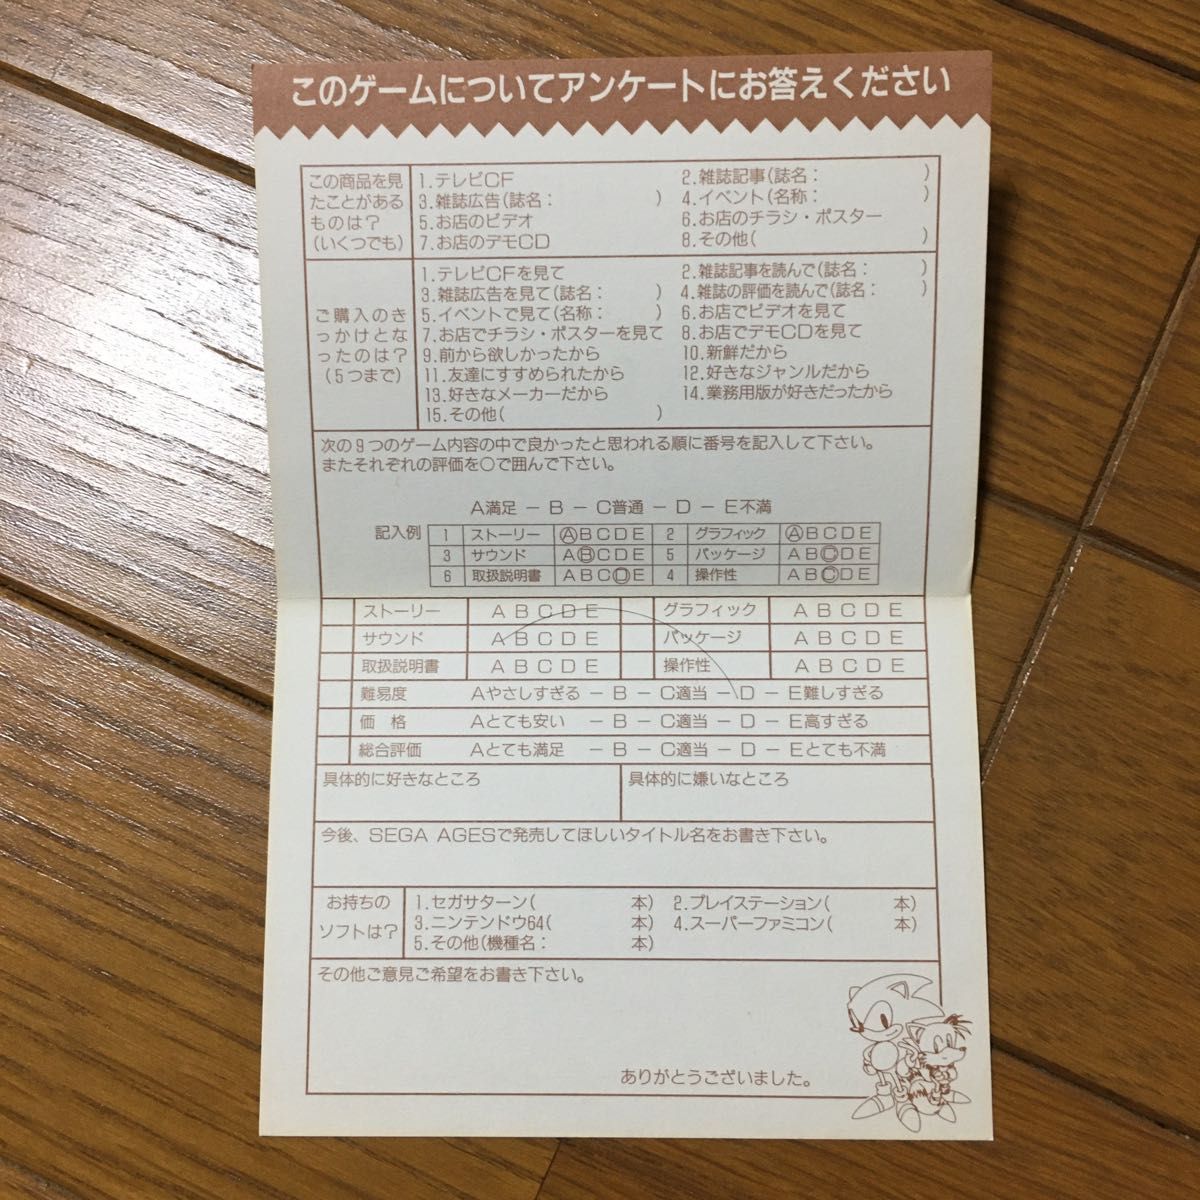 このゲームについてアンケートにお答えください
この商品を見たことがあるものは？（いくつでも）
1.テレビCF 2.雑誌記事(誌名： )
3.雑誌広告(誌名： ) 4.イベント(名称： )
5.お店のビデオ 6.お店のチラシ・ポスター
7.お店のデモCD 8.その他( )
ご購入のきっかけとなったのは？（5つまで）
1.テレビCFを見て 2.雑誌記事を読んで(誌名： )
3.雑誌広告を見て(誌名： ) 4.雑誌の評価を読んで(誌名： )
5.イベントで見て(名称： ) 6.お店でビデオを見て
7.お店でチラシ・ポスターを見て 8.お店でデモCDを見て
9.前から欲しかったから 10.新鮮だから
11.友達にすすめられたから 12.好きなジャンルだから
13.好きなメーカーだから 14.業務用版が好きだったから
15.その他( )
次の9つのゲーム内容の中で良かったと思われる順に番号を記入して下さい。
またそれぞれの評価を○で囲んで下さい。
A満足 － B － C普通 － D － E不満
記入例 1 ストーリー ABCDE 2 グラフィック ABCDE
3 サウンド ABCDE 5 パッケージ ABCDE
6 取扱説明書 ABCDE 4 操作性 ABCDE
ストーリー ABCDE グラフィック ABCDE
サウンド ABCDE パッケージ ABCDE
取扱説明書 ABCDE 操作性 ABCDE
難易度 Aやさしすぎる － B － C適当 － D － E難しすぎる
価 格 Aとても安い － B － C適当 － D － E高すぎる
総合評価 Aとても満足 － B － C適当 － D － Eとても不満
具体的に好きなところ 具体的に嫌いなところ
今後、SEGA AGESで発売してほしいタイトル名をお書き下さい。
お持ちのソフトは？
1.セガサターン( 本) 2.プレイステーション( 本)
3.ニンテンドウ64( 本) 4.スーパーファミコン( 本)
5.その他(機種名： 本)
その他ご意見ご希望をお書き下さい。
ありがとうございました。